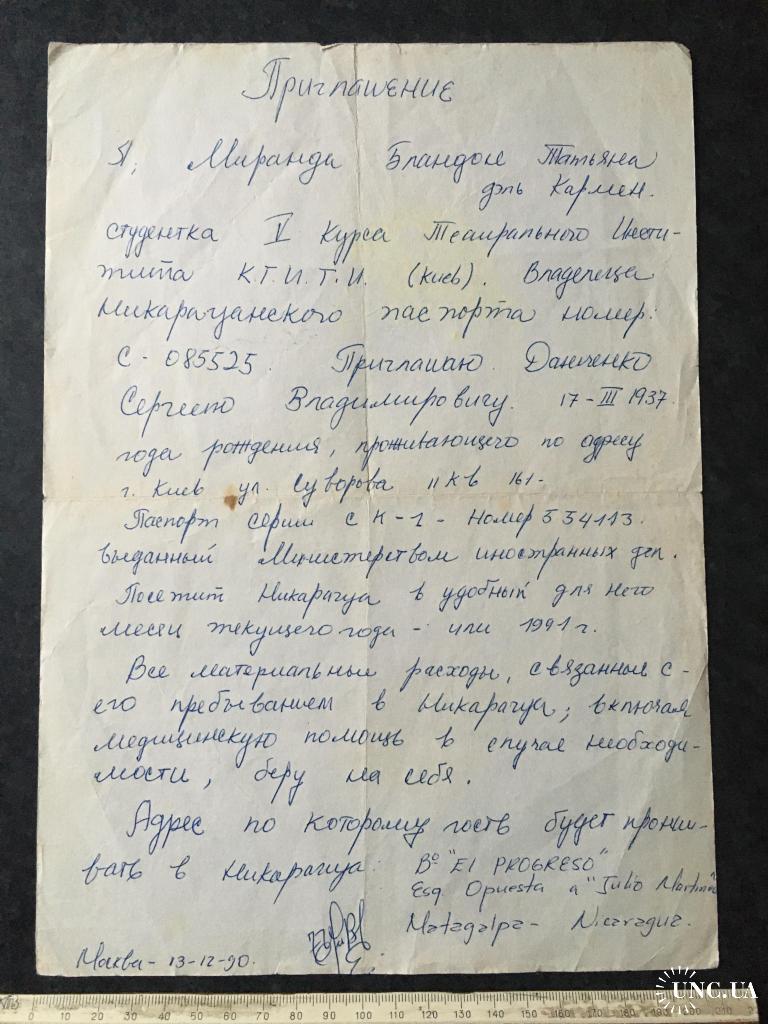 Приглашение
Я, Миранда Бландон Татьяна
дэль Кармен.
студентка V Курса Театрального Инсти-
тута К.Г.И.Т.И. (Киев). Владелица
Никарагуанского паспорта номер:
С - 085525. Приглашаю Данченко
Сергею Владимировичу. 17-III 1937.
года рождения, проживающего по адресу
г. Киев ул. Суворова 11 кв 161-
Паспорт серии СК-1 - номер 334113.
выданный Министерством иностранных дел.
Посетит Никарагуа в удобный для него
месяц текущего года - или 1991г.
Все материальные расходы, связанные с-
его пребыванием в Никарагуа; включая
медицинскую помощь в случае необходи-
мости, беру на себя.
Адрес по которому гость будет прожи-
вать в Никарагуа: Bº "El PROGRESO"
Esq. Opuesta a "Julio Martinez
Matagalpa - Nicaragua.
Москва - 13-12-90.
10 20 30 40 50 60 70 80 90 100 110 120 130 140 150 160 170 180 190 200 210
UNC.UA